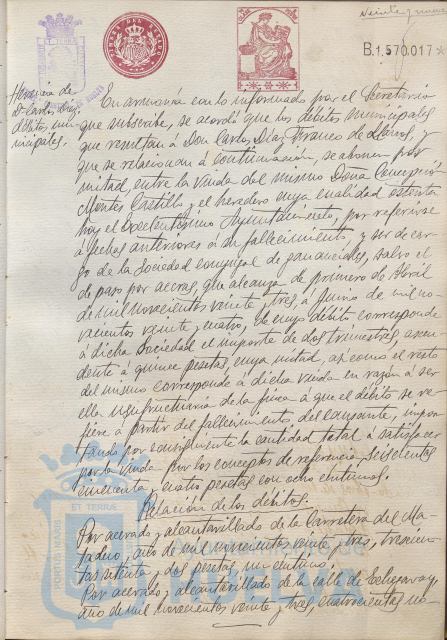 Veinte y nueve
B.1,570.017*
Herencia de
D. Carlos Díaz,
débitos mu-
nicipales.
En armonía con lo informado por el Secretario
que subscribe, se acordó que los débitos municipales
que resultan á Don Carlos Díaz Franco de Llanos, y
que se relacionan á continuación, se abonen por
mitad, entre la viuda del mismo Doña Concepción
Montes Castillo y el heredero cuya cualidad ostenta
hoy el Excelentísimo Ayuntamiento, por referirse
á fechas anteriores á su fallecimiento, y ser de car-
go de la Sociedad conyugal de gananciales, salvo el
de paso por aceras, que alcanza de primero de Abril
de mil novecientos veinte y tres, á Junio de mil no-
vecientos veinte y cuatro, de cuyo débito corresponde
á dicha Sociedad el importe de dos trimestres, ascen-
dente á quince pesetas, cuya mitad, así como el resto
del mismo corresponde á dicha viuda en razón á ser
ella usufructuaria de la finca á que el débito se re-
fiere á partir del fallecimiento del causante, impor-
tando por consiguiente la cantidad total á satisfacer
por la viuda por los conceptos de referencia, seiscientas
cincuenta y cuatro pesetas con ocho céntimos.
Relación de los débitos.
Por acerado y alcantarillado de la Carretera del Ma-
tadero, año de mil novecientos veinte y tres, trescien-
tas setenta y dos pesetas, un céntimo.
Por acerado y alcantarillado de la calle de Echegaray,
año de mil novecientos veinte y tres, cuatrocientas no-
PORTUS MARIS
ET TERRÆ
Ayuntamiento de
HUELVA